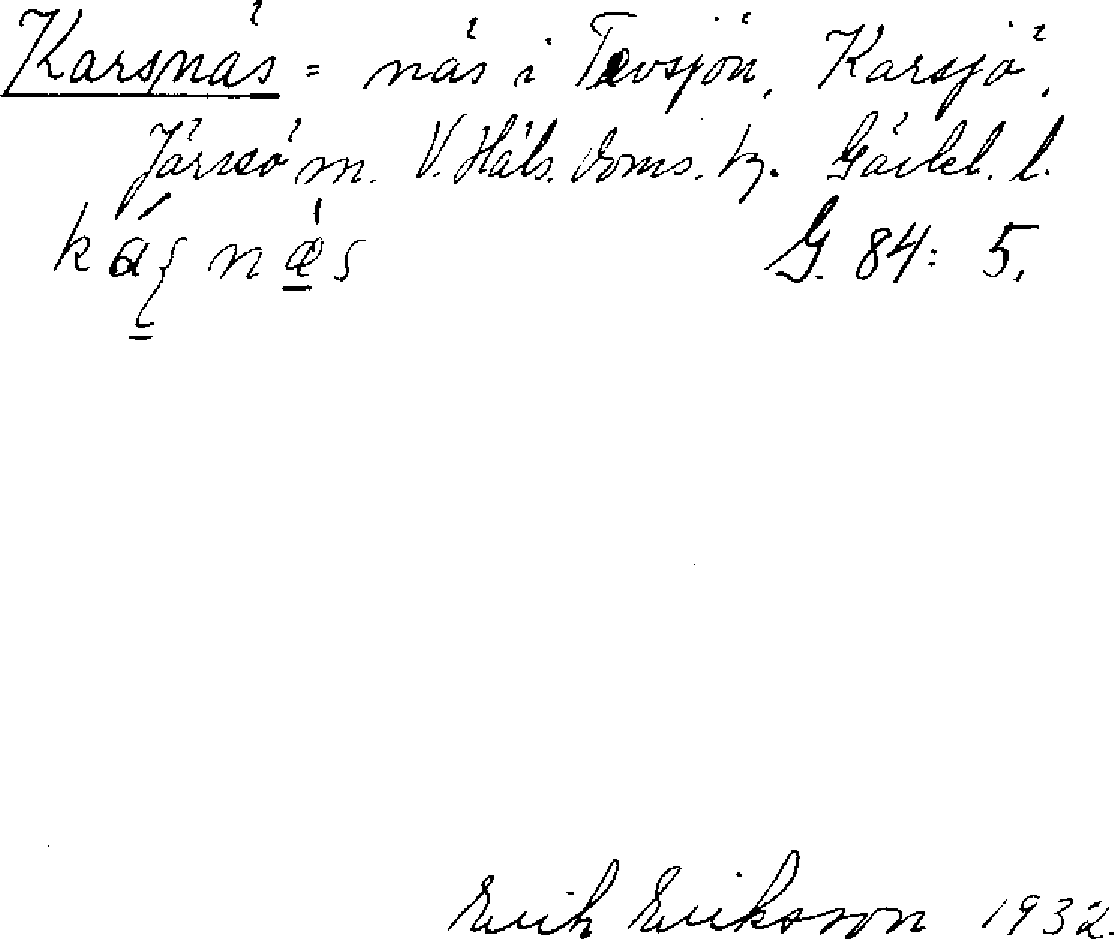 Karsnäs = näs i Tevsjön, Karsjö,
Järvsö sn. V. Häls. doms. tg. Gävleb. l.
G. 84: 5.
Erik Eriksson 1932.